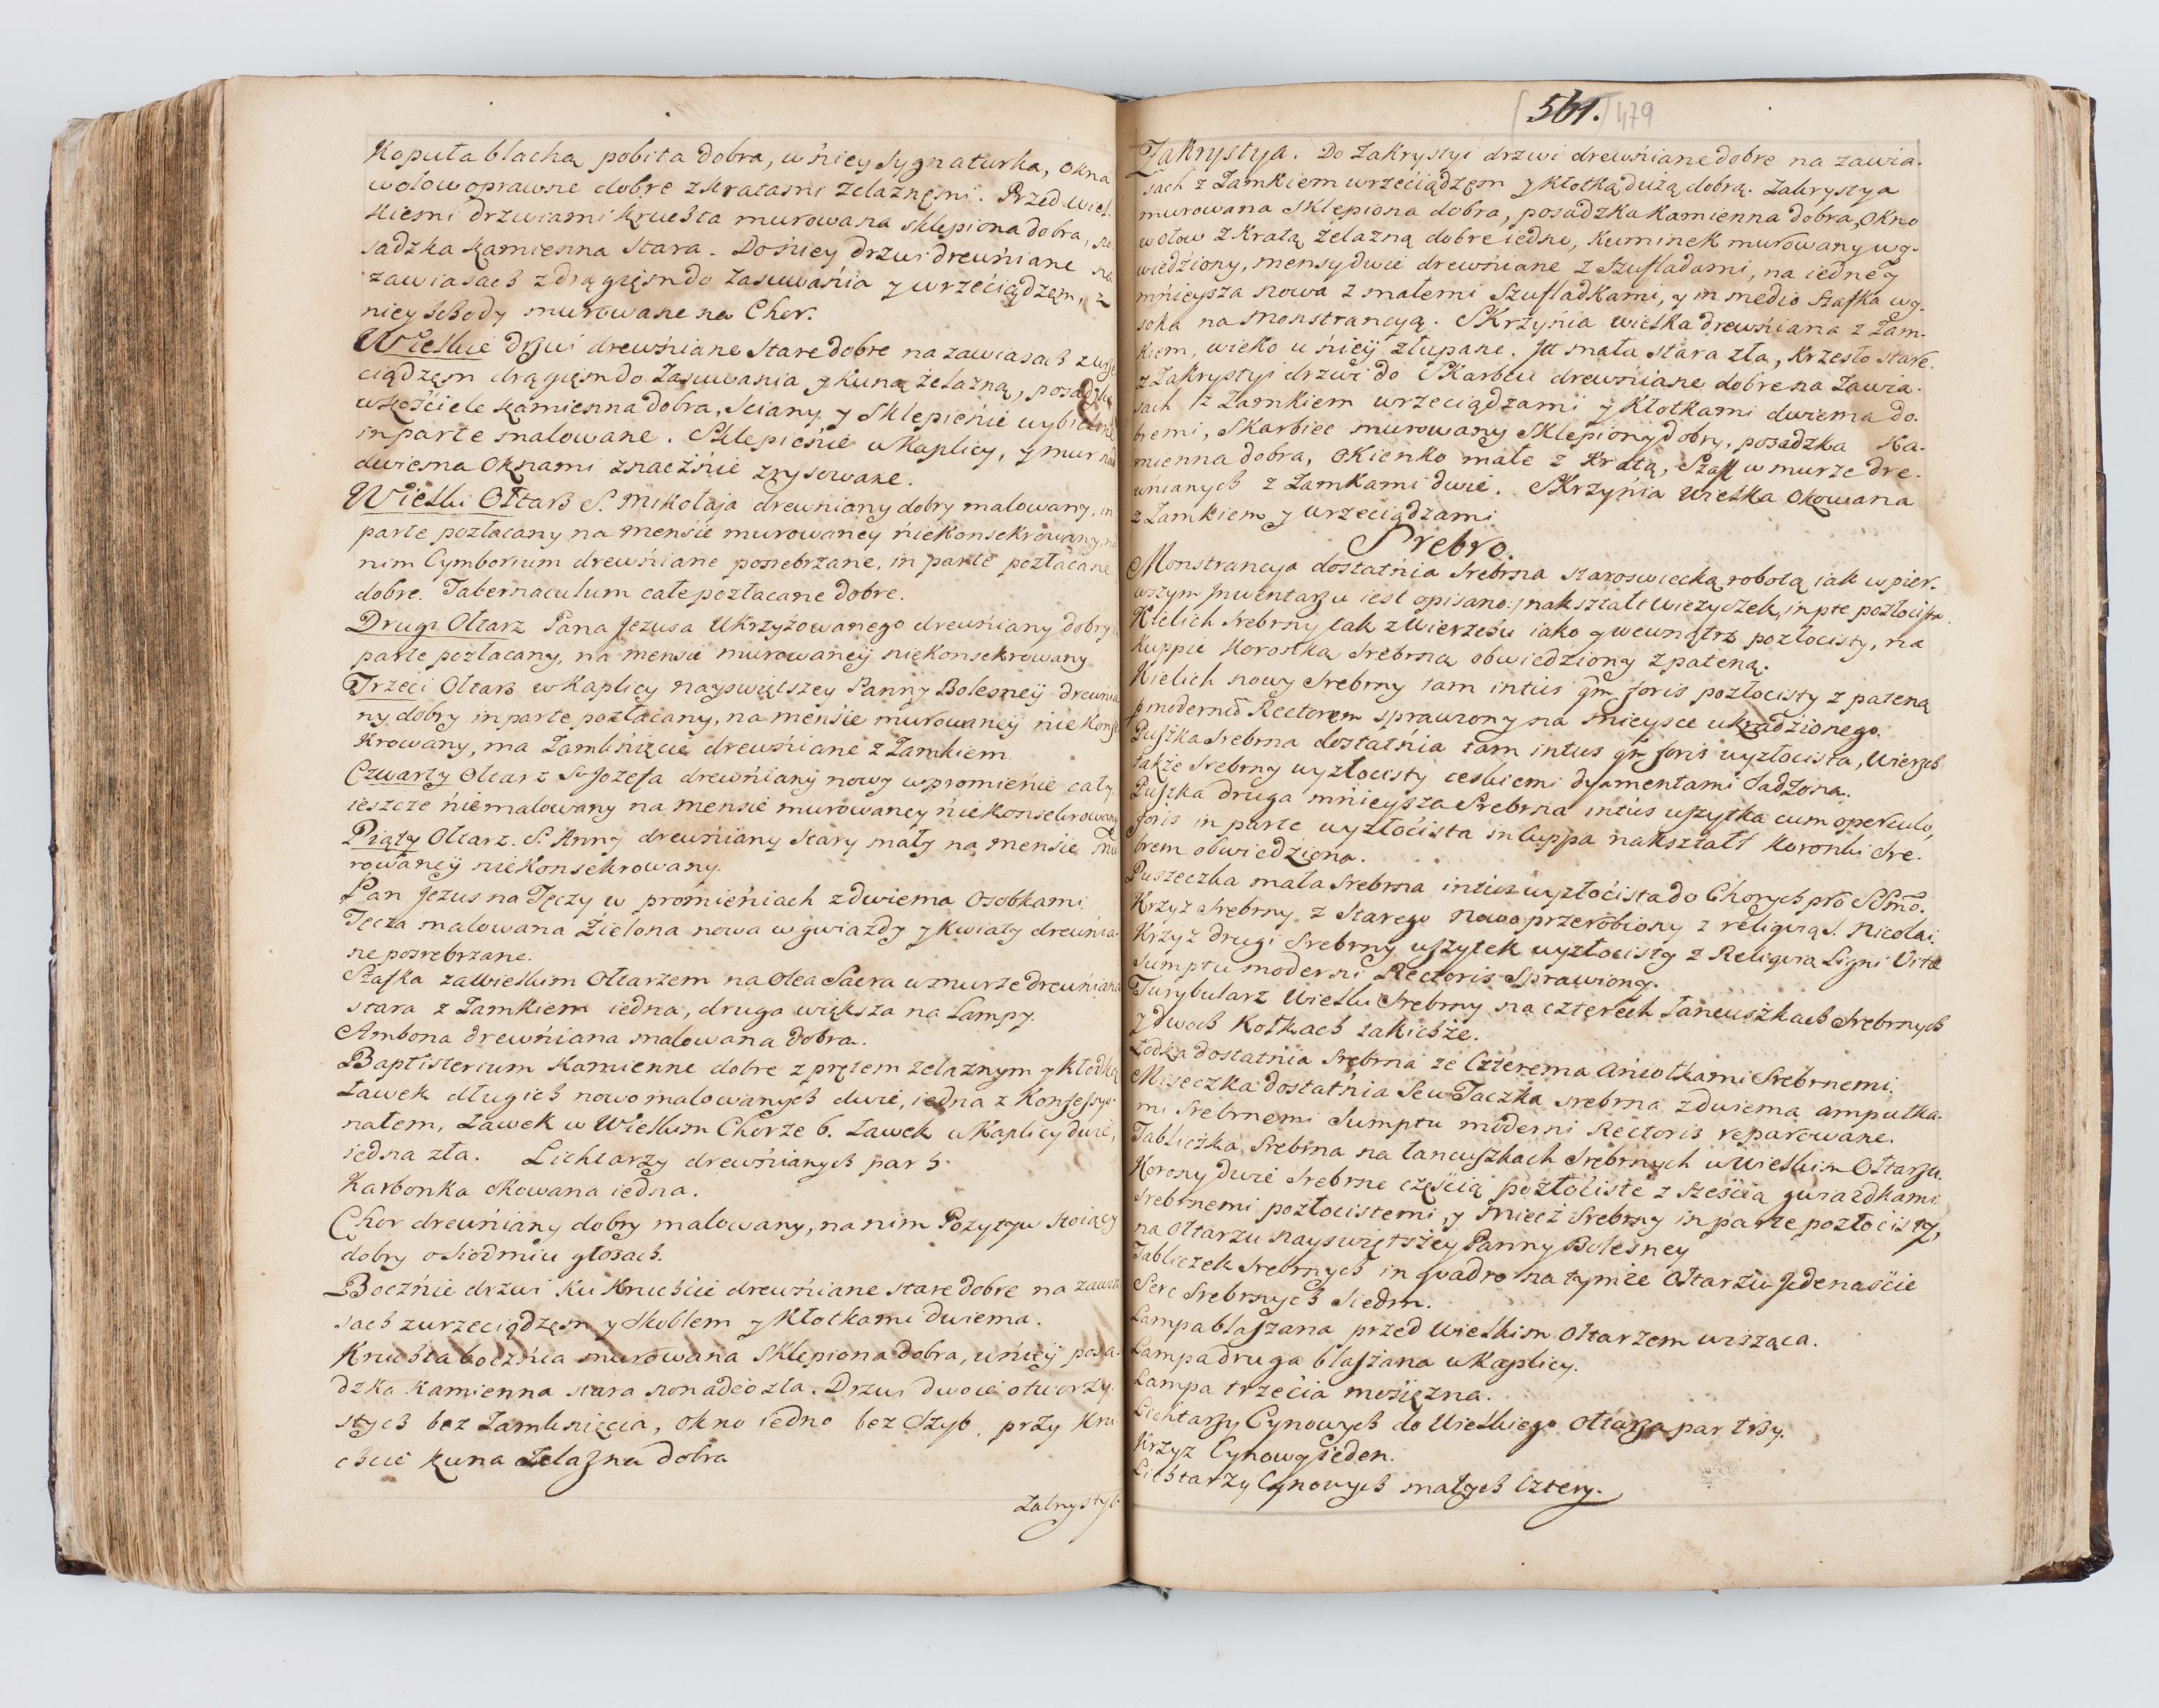 Kopuła blachą pobita dobra, w niey Sygnaturka, okna
w ołow oprawne dobre z kratami żelaznęmi. Przed wiel-
kiemi drzwiami kruchta murowana sklepiona dobra, po
sadzka kamienna stara. Do niey drzwi drewniane na
zawiasach z drągięm do zasuwania y wrzeciądzem, z
niey schody murowane na Chor.
Wielkie drzwi drewniane stare dobre na zawiasach z wrze
ciądzęm drągięm do zasuwania y kuną żelazną, posadzka
w kościele kamienna dobra, sciany y sklepienie wybielone
in parte malowane. Sklepienie w kaplicy, y mur nad
dwiema oknami znacznie zrysowane.
Wielki Ołtarz S. Mikołaja drewniany dobry malowany, in
parte pozłacany na mensie murowaney niekonsekrowany, na
nim Cymborium drewniane posrebrzane, in parte pozłacane
dobre. Tabernaculum całe pozłacane dobre.
Drugi Ołtarz Pana Jezusa Ukrzyżowanego drewniany dobry in
parte pozłacany, na mensie murowaneÿ niekonsekrowany
Trzeci Ołtarz w kaplicy nayswiętszey Panny Bolesneÿ drewnia
ny dobry in parte pozłacany, na mensie murowaneÿ nie konse
krowany, ma zamknięcie drewniane z zamkiem
Czwarty Ołtarz S. Jozefa drewniany nowy w promienie cały
ieszcze niemalowany na mensie murowaney niekonsekrowany
Piąty Ołtarz. S. Anny drewniany stary mały na mensie mu
rowaneÿ niekonsekrowany.
Pan Jezus na Tęczy w promieniach z dwiema osobkami
Tęcza malowana zielona nowa w gwiazdy y kwiaty drewnia-
ne posrebrzane.
Szafka za Wielkim Ołtarzem na Olea Sacra w murze drewniana
stara z zamkiem iedna, druga większa na Lampy.
Ambona drewniana malowana dobra.
Baptisterium kamienne dobre z prętem żelaznym y kłodką
Ławek długich nowo malowanych dwie, iedna z konfessyo-
nałem, Ławek w Wielkim Chorze 6. Ławek w Kaplicy dwie,
iedna zła. Lichtarzy drewnianych par 5.
Karbonka okowana iedna.
Chor drewniany dobry malowany, na nim Pozytyw stoiący
dobry o siodmiu głosach.
Bocznie drzwi ku kruchcie drewniane stare dobre na zawia
sach z wrzeciądzęm y skoblem y kłotkami dwiema.
Kruchta boczna murowana sklepiona dobra, w nieÿ posa-
dzka kamienna stara ponadto zła. Drzwi dwoie otworzy-
stych bez zamknięcia, okno iedno bez szyb, przy kru
chcie kuna żelazna dobra
Zakrystya
561. 479
Zakrystya. Do Zakrystyi drzwi drewniane dobre na zawia-
sach z zamkiem wrzeciądzęm y kłotką dużą dobrą. Zakrystya
murowana sklepiona dobra, posadzka kamienna dobra, okno
w ołow z kratą żelazną dobre iedno, kuminek murowany wy-
wiedziony, mensy dwie drewniane z szufladami, na iedney
mnieysza nowa z małemi szufladkami, y in medio szafka wy-
soka na monstrancyą. Skrzynia wielka drewniana z zam-
kiem, wieko u nieÿ złupane. Itt mała stara zła, krzesło stare.
z Zakrystyi drzwi do Skarbcu drewniane dobre na zawia-
sach z zamkiem wrzeciądzami y kłotkami dwiema do-
bremi, Skarbiec murowany sklepiony dobry, posadzka ka-
mienna dobra, okienko małe z kratą, Szaff w murze dre-
wnianych z zamkami dwie. Skrzynia wielka okowana
z zamkiem y wrzeciądzami
Srebro.
Monstrancya dostatnia srebrna staroswiecką robotą iak w pier-
wszym Inwentarzu iest opisano: nakształt wieżyczek, in pte pozłocista.
Kielich srebrny tak z wierzchu iako y wewnątrz pozłocisty, na
kuppie koronką srebrną obwiedziony z pateną.
Kielich nowy srebrny tam intus qm foris pozłocisty z pateną
p modernū Rectorem sprawiony na mieysce ukradzionego.
Puszka srebrna dostatnia tam intus qm foris wyzłocista, wierzch
także srebrny wyzłocisty ceskiemi dyamentami sadzona.
Puszka druga mnieysza srebrna intus wszytka cum operculo,
foris in parte wyzłocista in cuppa nakształt koronki sre-
brem obwiedziona.
Puszeczka mała srebrna intus wyzłocista do Chorych pro SSmo.
Krzyż srebrny z starego nowo przerobiony z religvią S. Nicolai.
Krzyż drugi srebrny wszytek wyzłocisty z Religvią Ligni Vitæ
Sumptu moderni Rectoris sprawiony.
Turybularz wielki srebrny na czterech łancuszkach srebrnych
y dwoch kołkach takichże.
Łodka dostatnia srebrna ze czterema aniołkami srebrnemi.
Miseczka dostatnia seu Taczka srebrna z dwiema ampułka-
mi srebrnemi Sumptu moderni Rectoris reparowane.
Tabliczka srebrna na łancuszkach srebrnych w Wielkim Ołtarzu.
Korony dwie srebrne częścią pozłociste z sześcią gwiazdkami
srebrnemi pozłocistemi, y miecz srebrny in parte pozłocisty,
na Ołtarzu nayswiętszey Panny Bolesney
Tabliczek srebrnych in qvadro na tymże Ołtarzu jedenaście
Serc srebrnych siedm.
Lampa blaszana przed Wielkim Ołtarzem wisząca.
Lampa druga blaszana w Kaplicy.
Lampa trzecia mosiężna.
Lichtarzy Cynowych do Wielkiego Ołtarza par trzy.
Krzyż Cynowy ieden.
Lichtarzy Cynowych małych cztery.